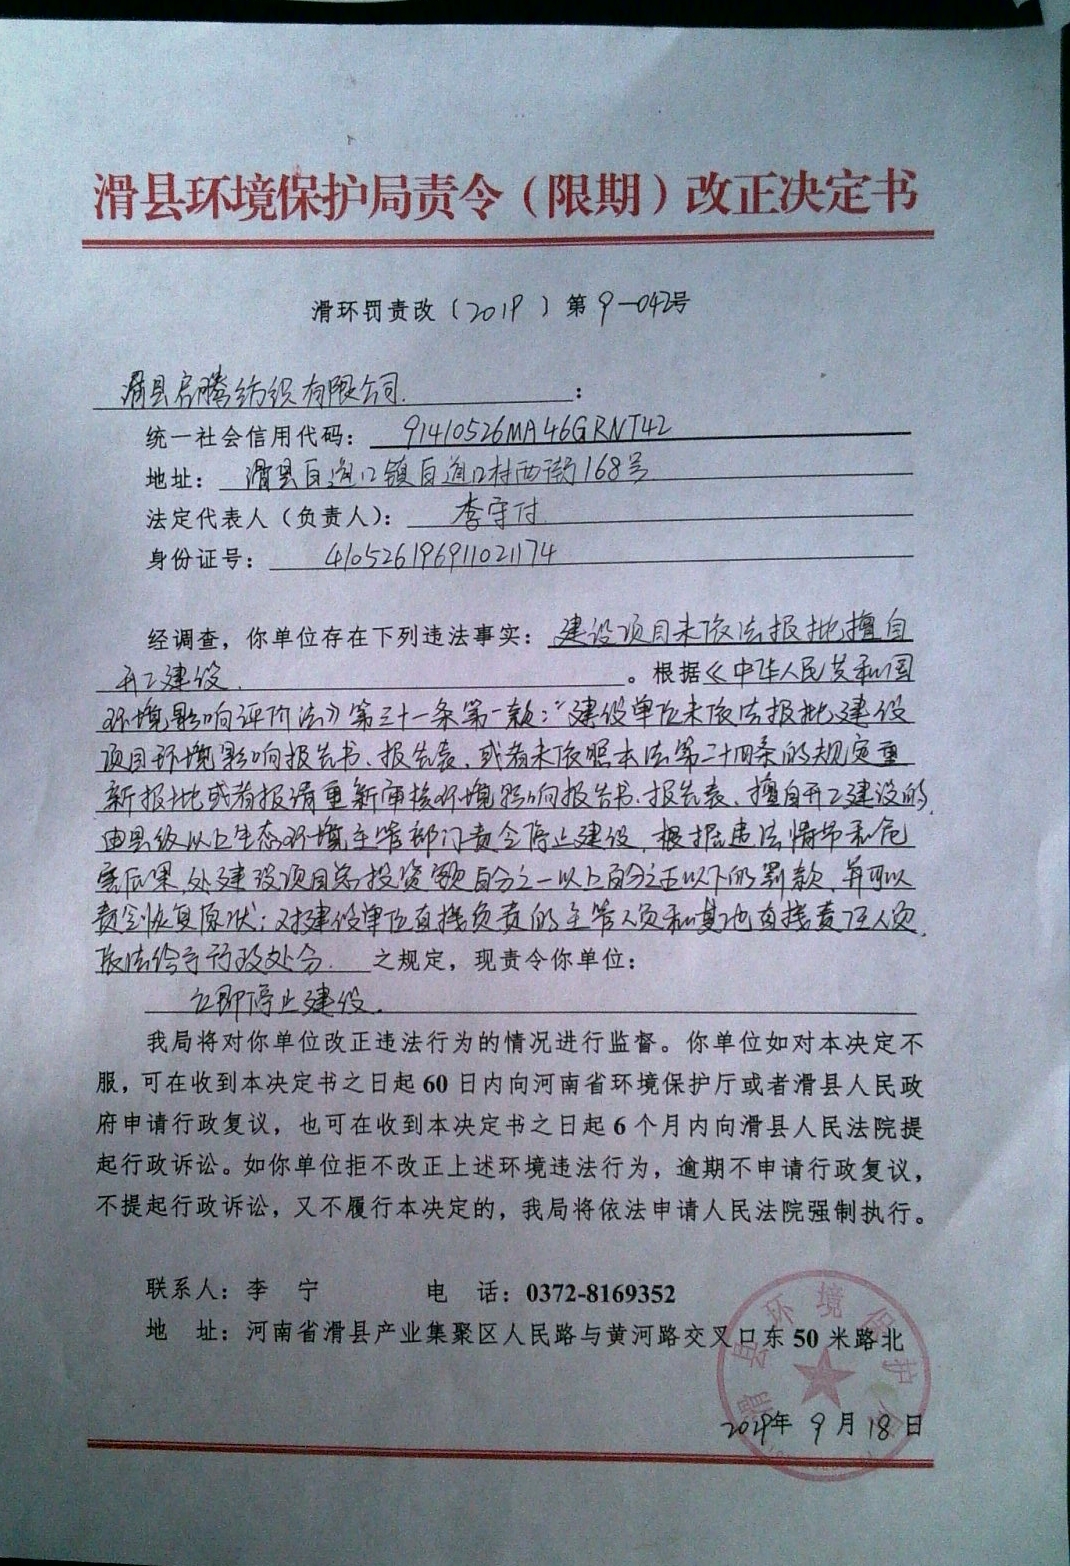 滑县环境保护局责令（限期）改正决定书
滑环罚责改（2019）第9-042号
滑县启腾纺织有限公司：
统一社会信用代码：91410526MA46GRNT42
地址：滑县白道口镇白道口村西街168号
法定代表人（负责人）：李守付
身份证号：410526196911021174
经调查，你单位存在下列违法事实：建设项目未依法报批擅自
开工建设。根据《中华人民共和国
环境影响评价法》第三十一条第一款：“建设单位未依法报批建设
项目环境影响报告书、报告表、或者未依照本法第二十四条的规定重
新报批或者报请重新审核环境影响报告书、报告表、擅自开工建设的，
由县级以上生态环境主管部门责令停止建设，根据违法情节和危
害后果，处建设项目总投资额百分之一以上百分之五以下的罚款，并可以
责令恢复原状；对建设单位直接负责的主管人员和其他直接责任人员，
依法给予行政处分. 之规定，现责令你单位：
立即停止建设.
我局将对你单位改正违法行为的情况进行监督。你单位如对本决定不
服，可在收到本决定书之日起60日内向河南省环境保护厅或者滑县人民政
府申请行政复议，也可在收到本决定书之日起6个月内向滑县人民法院提
起行政诉讼。如你单位拒不改正上述环境违法行为，逾期不申请行政复议，
不提起行政诉讼，又不履行本决定的，我局将依法申请人民法院强制执行。
联系人：李 宁 电 话：0372-8169352
地 址：河南省滑县产业集聚区人民路与黄河路交叉口东50米路北
滑县环境保护局
2019年9月18日